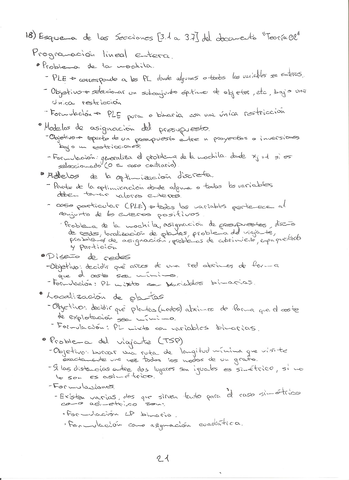 18) Esquema de las secciones [3.1 a 3.7] del documento "Teoría 02"
Programación lineal entera.
• Problema de la mochila.
- PLE → corresponde a los PL donde algunas o todas las variables son enteras.
- Objetivo → seleccionar un subconjunto óptimo de objetos, etc, bajo una
única restricción
- Formulación → PLE pura o binaria con una única restricción
• Modelos de asignación del presupuesto
- Objetivo → reparto de un presupuesto entre n proyectos o inversiones
bajo m restricciones
- Formulación: generaliza el problema de la mochila donde xj =1 si es
seleccionado (0 en caso contrario)
• Modelos de la optimización discreta
- Rama de la optimización donde alguna o todas las variables
deben tomar valores enteros
- caso particular (PLE) → todas las variables pertenecen al
conjunto de los enteros positivos
- Problema de la mochila, asignación de presupuestos, diseño
de redes, localización de plantas, problema del viajante,
problema de asignación, problemas de cubrimiento, empaquetado
y partición
• Diseño de redes
- Objetivo: decidir qué arcos de una red abrimos de forma
que el coste sea mínimo.
- Formulación: PL mixto con variables binarias
• Localización de plantas
- Objetivo: decidir qué plantas (nodos) abrimos de forma que el coste
de explotación sea mínimo.
- Formulación: PL mixto con variables binarias.
• Problema del viajante (TSP)
- Objetivo: buscar una ruta de longitud mínima que visite
exactamente una vez todos los nodos de un grafo.
- Si las distancias entre dos lugares son iguales es simétrico, si no
lo son es asimétrico.
- Formulaciones
- Existen varias, dos que sirven tanto para el caso simétrico
como asimétrico son:
• Formulación LP binaria.
• Formulación como asignación cuadrática.
21